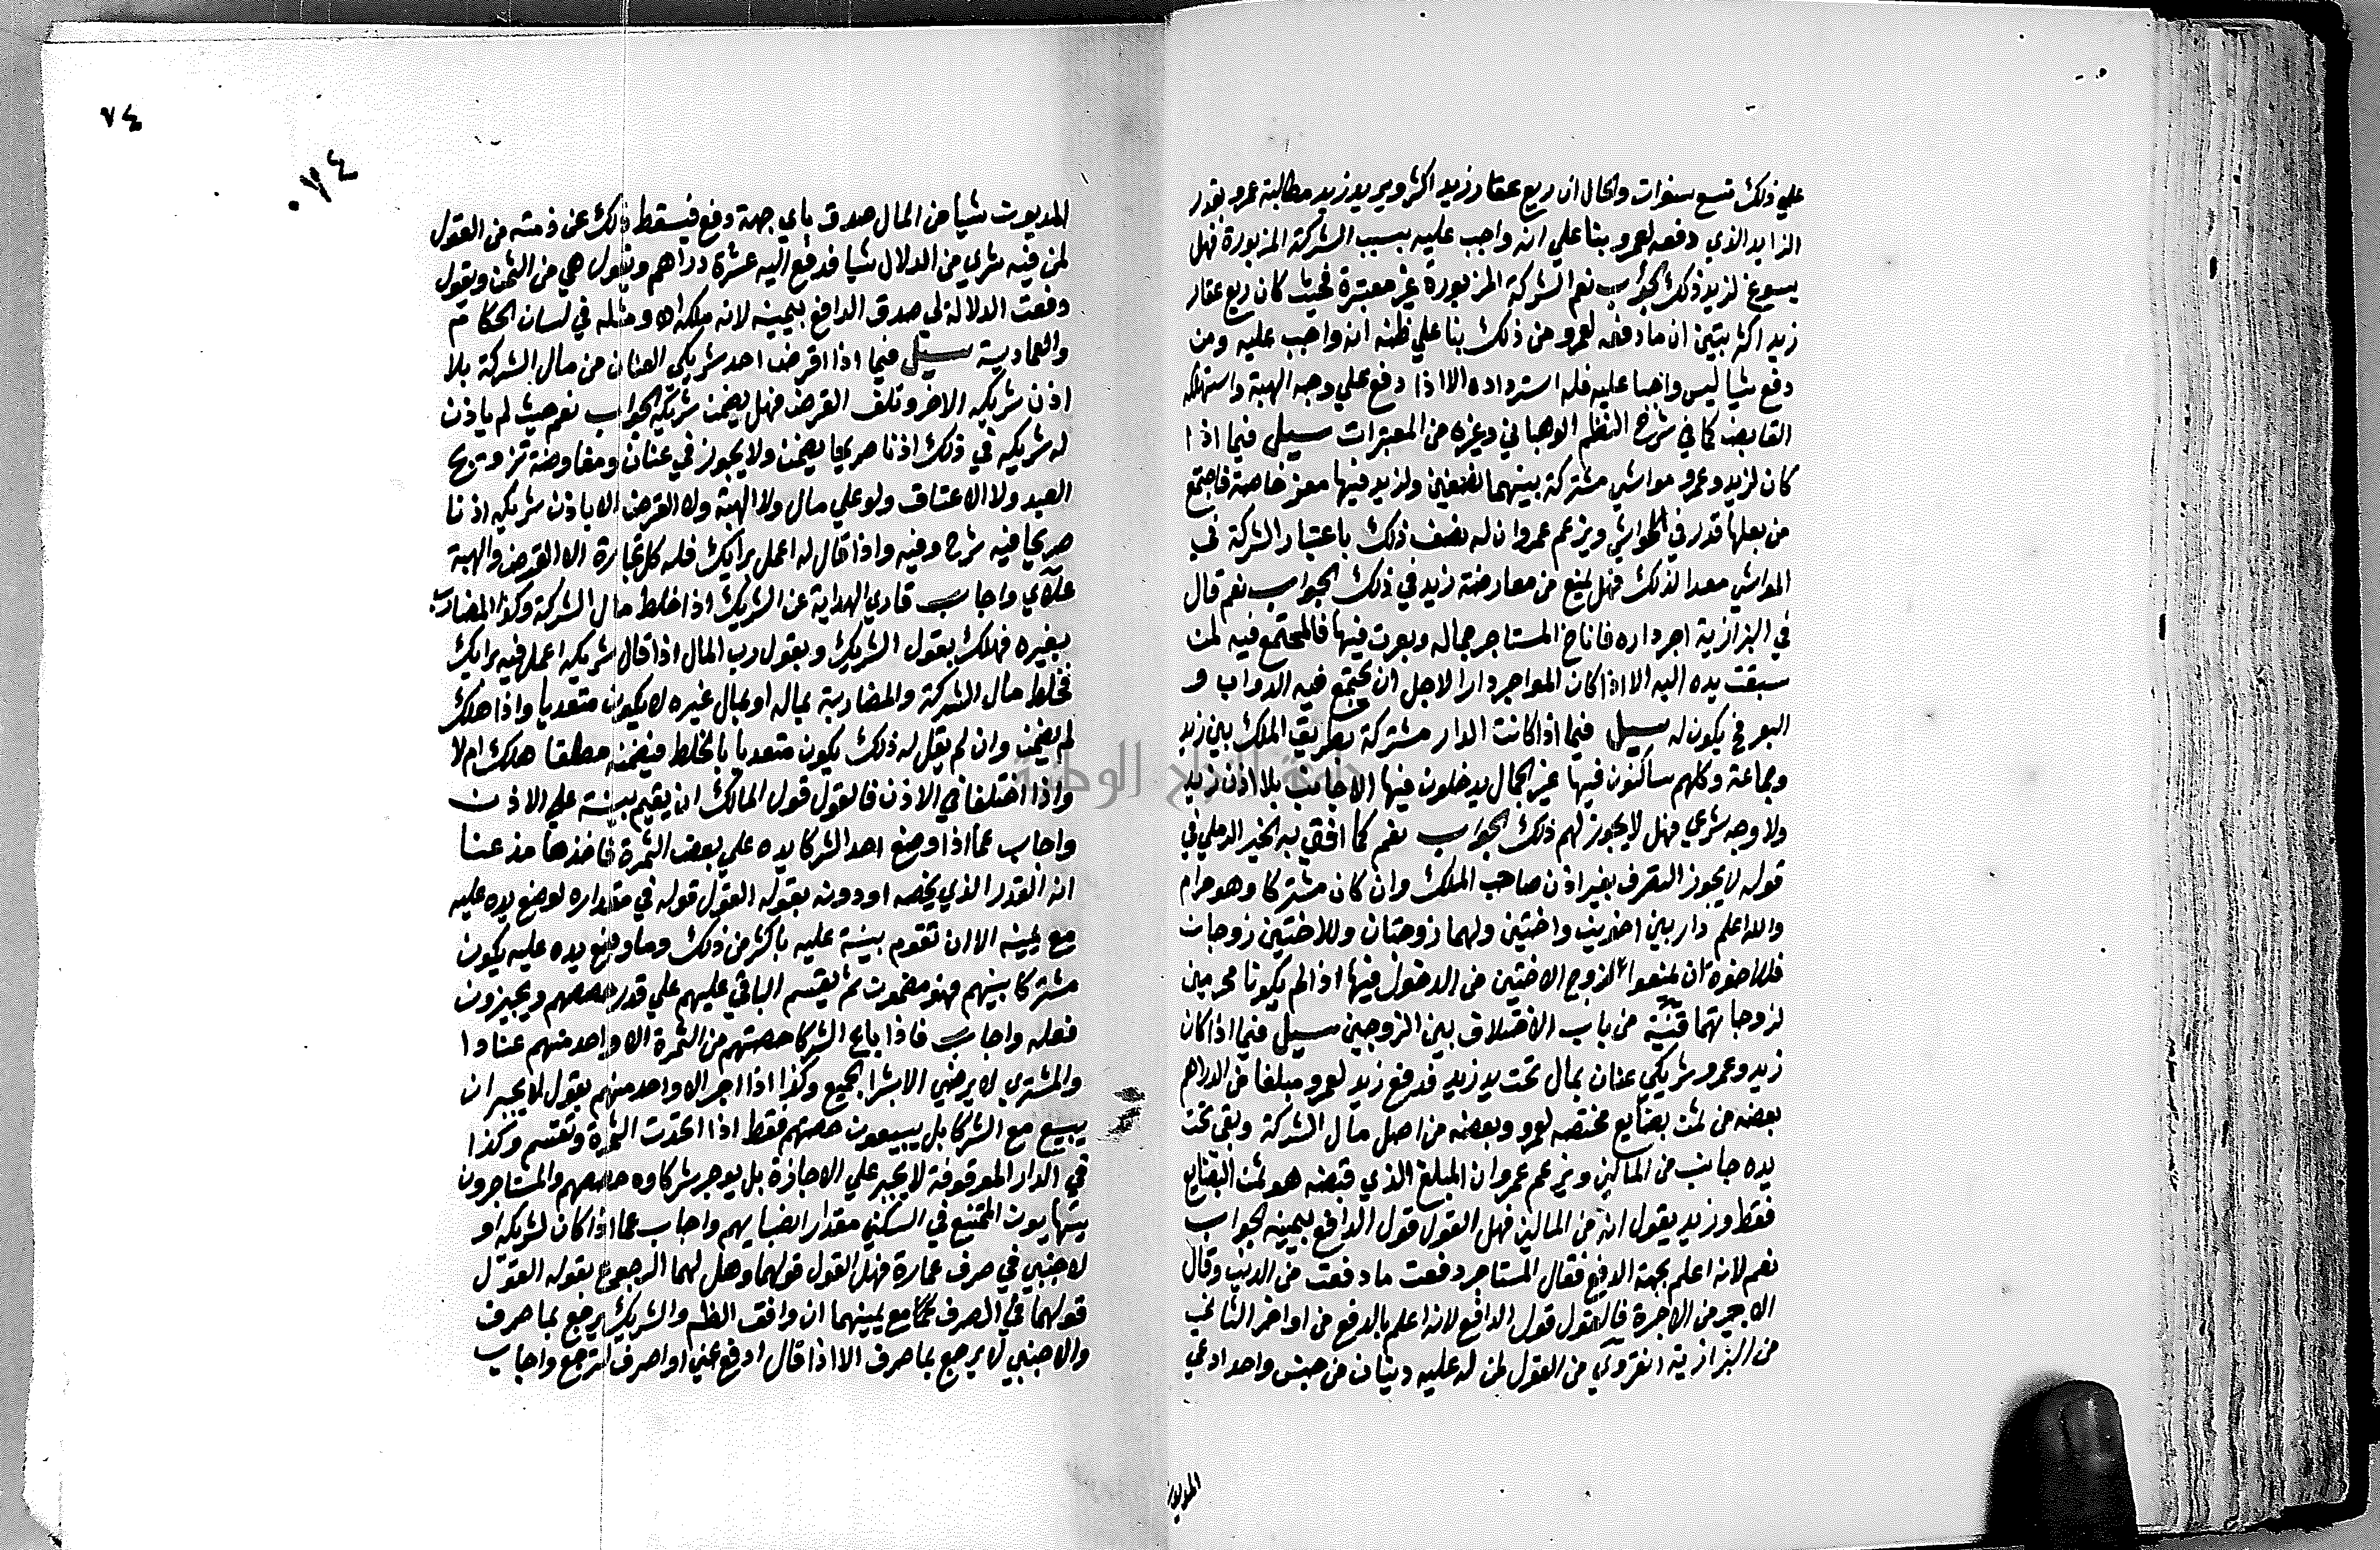 علي ذلك تسع سنوات والحال ان ريع عقار زيد اكثر ويريد زيد مطالبة عمرو بقدر
الزايد الذي دفعه لعمرو بنا علي انه واجب عليه بسبب الشركة المزبورة فهل
يسوغ لزيد ذلك الجواب نعم الشركة المزبورة غير معتبرة فحيث كان ريع عقار
زيد اكثر تبين ان ما دفعه لعمرو من ذلك بنا علي ظنه انه واجب عليه ومن
دفع شيا ليس واجبا عليه فله استرداده الا اذا دفع علي وجه الهبة واستهلكه
القابض كما في شرح النظم الوهباني وغيره من المعتبرات سيل فيما اذا
كان لزيد وعمرو مواشي مشتركة بينهما نصفين ولزيد فيها معز خاصة فاجتمع
من بعلها قدر في الحواشي ويزعم عمرو ان له نصف ذلك باعتبار الشركة في
المواشي معدا لذلك فهل يمنع من معارضة زيد في ذلك الجواب نعم قال
في البزازية اجر داره فاناخ المستاجر جماله وبعرت فيها فالمجتمع فيه لمن
سبقت يده اليه الا اذا كان المواجر دارا لاجل ان يجتمع فيه الدواب و
البعر فح يكون له سيل فيما اذا كانت الدار مشتركة بطريق الملك بين زيد
وجماعة وكلهم ساكنون فيها غير الجمال يدخلون فيها الاجانب بلا اذن زيد
ولا وجه شرعي فهل لا يجوز لهم ذلك الجواب نعم كما افتي به الخير الرملي في
قوله لا يجوز التصرف بغير اذن صاحب الملك وان كان مشتركا وهو حرام
والله اعلم دار بين اخوين واختين ولهما زوجتان وللاختين زوجان
فللاخوة ان يمنعوا الزوج الاختين من الدخول فيها اذا لم يكونا محرمين
لزوجاتهما قنية من باب الاختلاف بين الزوجين سيل فيما اذا كان
زيد وعمرو شريكي عنان بمال تحت يد زيد فدفع زيد لعمرو مبلغا من الدراهم
بعضه من ثمن بضايع مختصه لعمرو وبعضه من اصل مال الشركة وبقي تحت
يده جانب من المالين ويزعم عمرو ان المبلغ الذي قبضه هو ثمن البضايع
فقط وزيد يقول انه من المالين فهل القول قول الدافع بيمينه الجواب
نعم لانه اعلم بجهة الدفع فقال المستاجر دفعت ما دفعت من الدين وقال
الاجير من الاجرة فالقول قول الدافع لانه اعلم بالدفع من اواخر الثاني
من البزازية انقروي من القول لمن له عليه دينان من جنس واحد ادعي
المديون
المديون شيا من المال صدق باي جهة دفع فيسقط ذلك عن ذمته من القول
لمن فيه شري من الدلال شيا فدفع اليه عشرة دراهم ويقول هي من الثمن ويقول
دفعت الدلالة لي صدق الدافع بيمينه لانه مملكه اه ومثله في لسان الحكام
والعمادية سيل فيما اذا اقرض احد شريكي العنان من مال الشركة بلا
اذن شريكه الاخر وتلف القرض فهل يضمن شريكه الجواب نعم حيث لم ياذن
له شريكه في ذلك اذنا صريحا يضمن ولا يجوز في عنان ومفاوضة تزويج
العبد ولا الاعتاق ولو علي مال ولا الهبة ولا القرض الا باذن شريكه اذنا
صريحا فيه شرح وفيه واذا قال له اعمل برايك فله كل تجارة الا القرض والهبة
علاي واجاب قاري الهداية عن الشريك اذا خلط مال الشركة وكذا المضارب
بغيره فهلك بقول الشريك وبقول رب المال اذا قال شريكه اعمل فيه برايك
فخلط مال الشركة والمضاربة بماله او بمال غيره لا يكون متعديا واذا هلك
لم يضمن وان لم يقل له ذلك يكون متعديا بالخلط فيضمنه مطلقا هلك ام لا
واذا اختلفا في الاذن فالقول قول المالك ان يقيم بينة علي الاذن
واجاب عما اذا وضع احد الشركا يده علي بعض الثمرة فاخذها مدعيا
انه القدر الذي يخصه او دونه بقوله القول قوله في مقداره لوضع يده عليه
مع يمينه الا ان تقوم بينة عليه باكثر من ذلك وما وضع يده عليه يكون
مشتركا بينهم فهو مضمون ثم يقتسم الباقي عليهم علي قدر حصصهم ويجيزون
فعله واجاب فاذا باع الشركا حصتهم من الثمرة الا واحد منهم عنادا
والمشتري لا يرضي الا بشرا الجميع وكذا اذا اجر الا واحد منهم بقول لا يجبر ان
يبيع مع الشركا بل يبيعون حصتهم فقط اذا اتحدت الثمرة وتقتسم وكذا
في الدار الموقوفة لا يجبر علي الاجازة بل يوجر شركاوه حصصهم والمستاجرون
يتهايون الممتنع في السكني مقدار انصبايهم واجاب عما اذا كان لشريكه او
لاجنبي في صرف عمارة فهل القول قولهما وهل لهما الرجوع بقوله القول
قولهما في الصرف مع يمينهما ان وافق الظاهر والشريك يرجع بما صرف
والاجنبي لا يرجع بما صرف الا اذا قال ادفع عني او اصرف لترجع واجاب
٠٧٤
٧٤
جامعة النجاح الوطنية